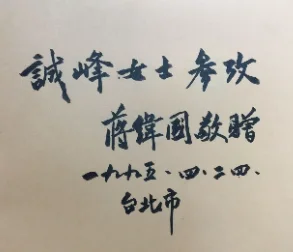 誠峰女士參攷
蔣緯國敬贈
一九九五、四、二四、
台北市